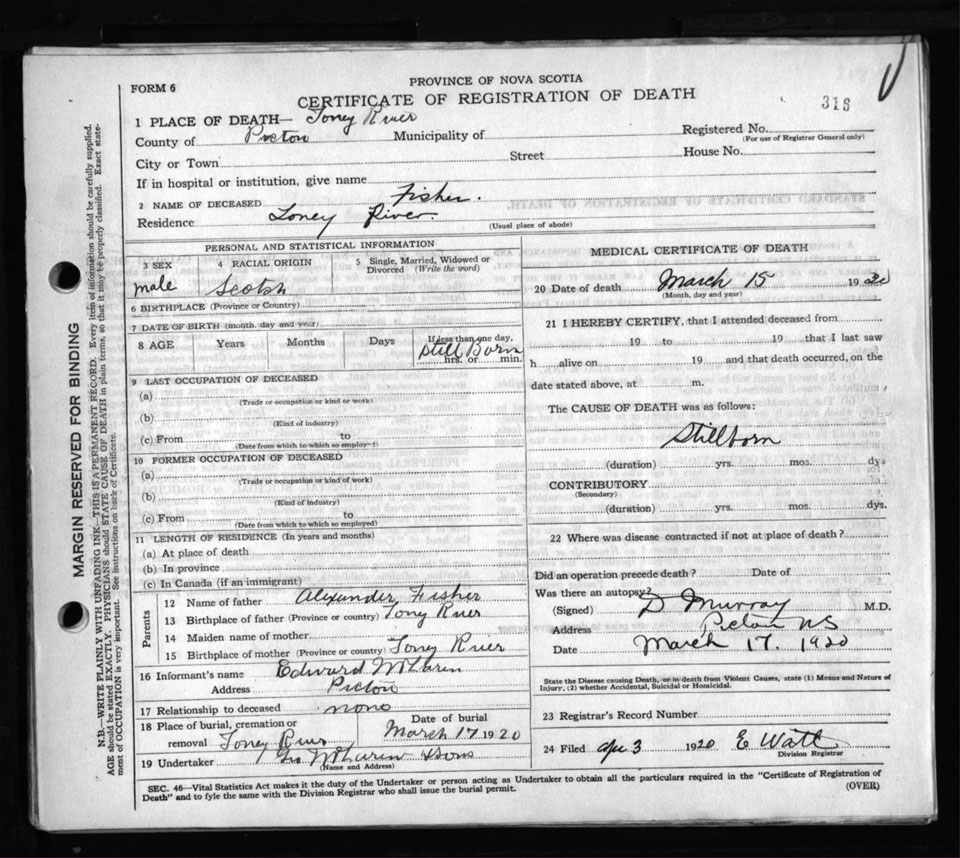 FORM 6
PROVINCE OF NOVA SCOTIA
CERTIFICATE OF REGISTRATION OF DEATH
316
1 PLACE OF DEATH— Toney River
County of Pictou Municipality of Registered No.
(For use of Registrar General only)
City or Town Street House No.
If in hospital or institution, give name
2 NAME OF DECEASED Fisher.
Residence Toney River
(Usual place of abode)
PERSONAL AND STATISTICAL INFORMATION
3 SEX 4 RACIAL ORIGIN 5 Single, Married, Widowed or Divorced (Write the word)
male Scotch
6 BIRTHPLACE (Province or Country)
7 DATE OF BIRTH (month, day and year)
8 AGE Years Months Days If less than one day,
Still Born
hrs. or min.
9 LAST OCCUPATION OF DECEASED
(a)
(Trade or occupation or kind or work)
(b)
(Kind of industry)
(c) From to
(Date from which to which so employed)
10 FORMER OCCUPATION OF DECEASED
(a)
(Trade or occupation or kind of work)
(b)
(Kind of industry)
(c) From to
(Date from which to which so employed)
11 LENGTH OF RESIDENCE (In years and months)
(a) At place of death
(b) In province
(c) In Canada (if an immigrant)
Parents
12 Name of father Alexander Fisher
13 Birthplace of father (Province or country) Tony River
14 Maiden name of mother
15 Birthplace of mother (Province or country) Toney River
16 Informant's name Edward McLaren
Address Pictou
17 Relationship to deceased none
18 Place of burial, cremation or Date of burial
removal Toney River March 17 1920
19 Undertaker McLaren & Sons
(Name and Address)
MEDICAL CERTIFICATE OF DEATH
20 Date of death March 15 1920
(Month, day and year)
21 I HEREBY CERTIFY, that I attended deceased from
19 to 19 that I last saw
h alive on 19 and that death occurred, on the
date stated above, at m.
The CAUSE OF DEATH was as follows:
Stillborn
(duration) yrs. mos. dys
CONTRIBUTORY
(Secondary)
(duration) yrs. mos. dys.
22 Where was disease contracted if not at place of death?
Did an operation precede death? Date of
Was there an autopsy?
(Signed) D Murray M.D.
Address Pictou NS
Date March 17. 1920
State the Disease causing Death, or in death from Violent Causes, state (1) Means and Nature of
Injury, (2) whether Accidental, Suicidal or Homicidal.
23 Registrar's Record Number
24 Filed Apr 3 1920 E Watt
Division Registrar
SEC. 46—Vital Statistics Act makes it the duty of the Undertaker or person acting as Undertaker to obtain all the particulars required in the "Certificate of Registration of
Death" and to fyle the same with the Division Registrar who shall issue the burial permit. (OVER)
MARGIN RESERVED FOR BINDING
N.B.—WRITE PLAINLY WITH UNFADING INK—THIS IS A PERMANENT RECORD. Every item of information should be carefully supplied.
AGE should be stated EXACTLY. PHYSICIANS should STATE CAUSE OF DEATH in plain terms, so that it may be properly classified. Exact state-
ment of OCCUPATION is very important. See instructions on back of Certificate.